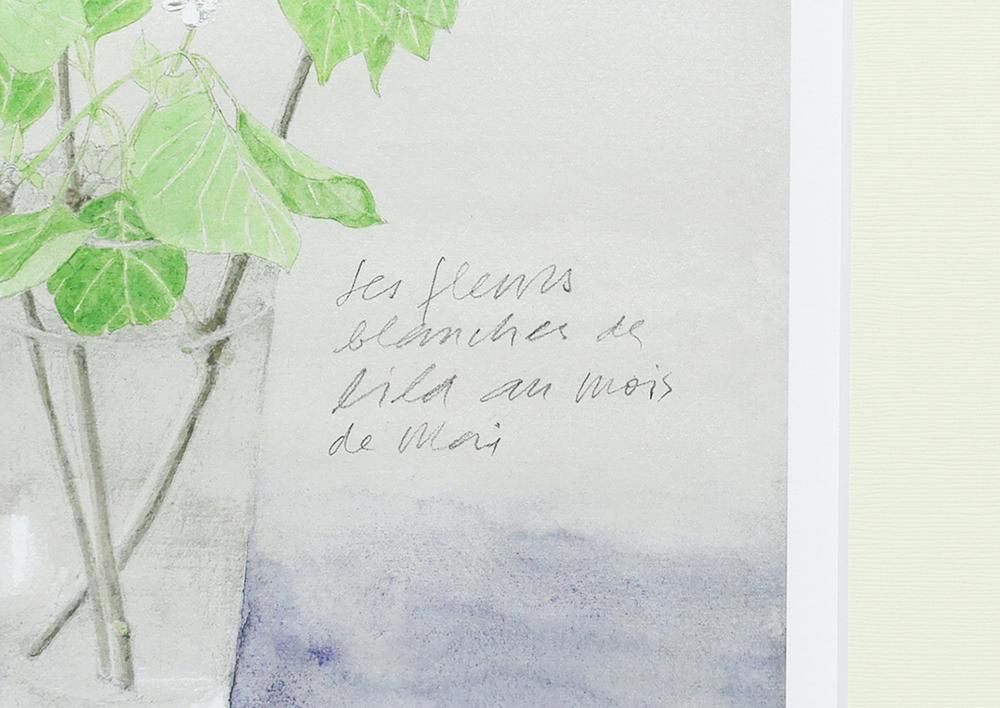 Les fleurs
blanches de
lila au mois
de Mai